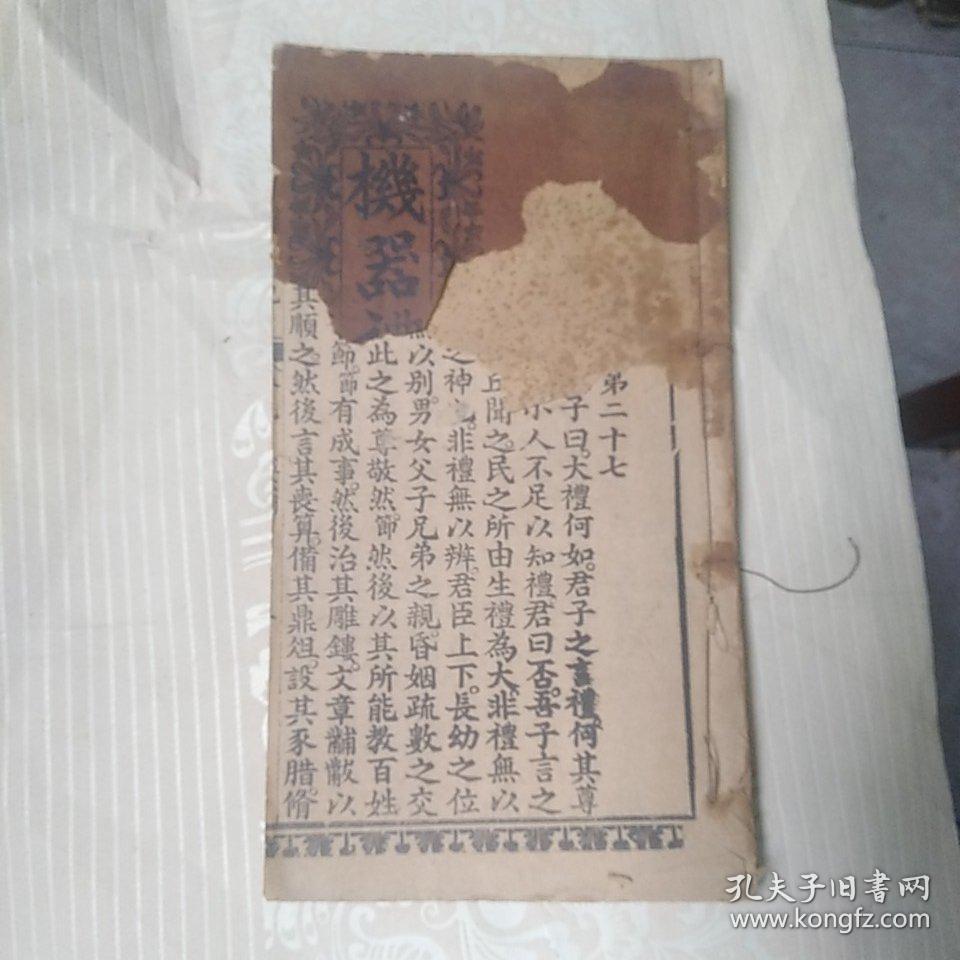 機器
弟二十七
子曰。大禮何如。君子之言禮。何其尊
小人不足以知禮。君曰否。吾子言之
丘聞之。民之所由生。禮為大。非禮無以
之神。非禮無以辨。君臣上下。長幼之位
無以別。男女父子兄弟之親。昏姻疏數之交
此之為尊敬然節。然後以其所能教百姓
節。節有成事。然後治其雕鏤。文章黼黻以
其順之。然後言其喪算。備其鼎俎。設其豕腊。脩
孔夫子旧书网
www.kongfz.com